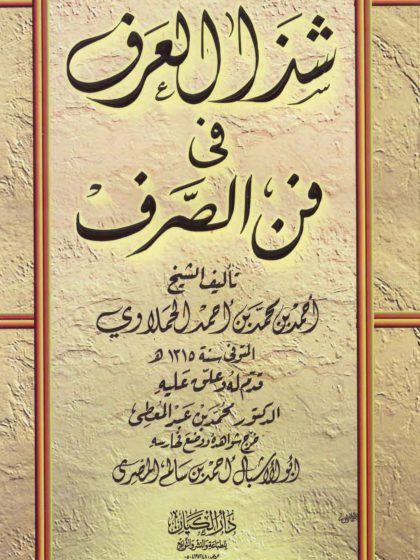 شذا العرف
في
فن الصرف
تأليف الشيخ
أحمد بن محمد بن أحمد الحملاوي
المتوفى سنة ١٣١٥ هـ
قدم له وعلق عليه
الدكتور محمد بن عبد المعطي
خرج شواهده ووضع فهارسه
أبو الأشبال أحمد بن سالم المصري
دار الكيان
للطباعة والنشر والتوزيع